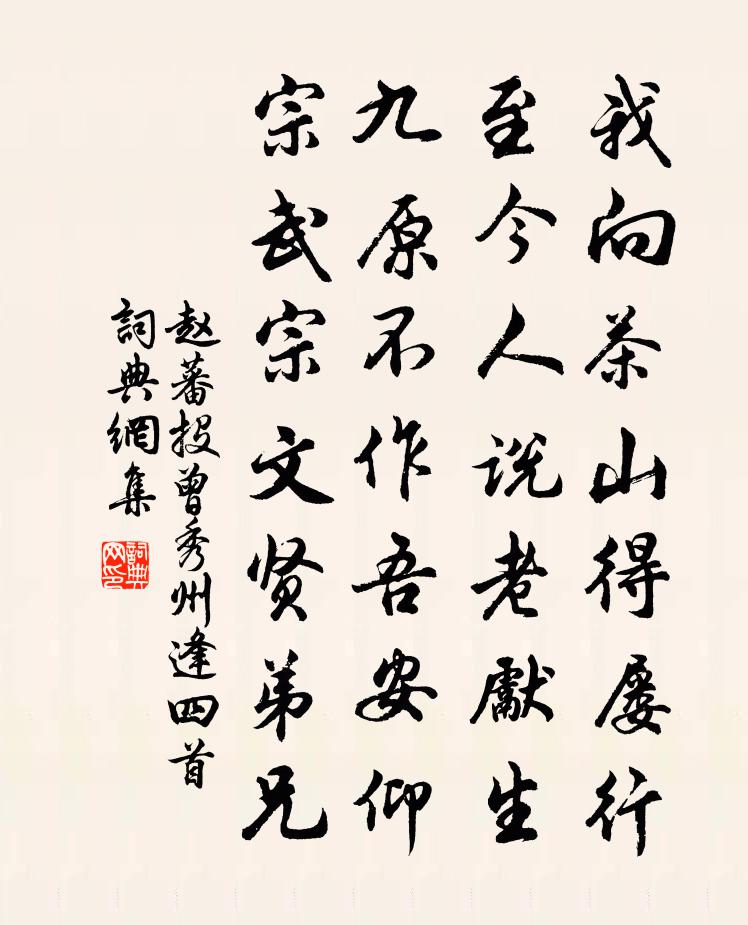 我向茶山得屡行
至今人说老獻生
九原不作吾安仰
宗武宗文贤弟兄
赵蕃投曾秀州逢四首
詞典網集
詞典网印